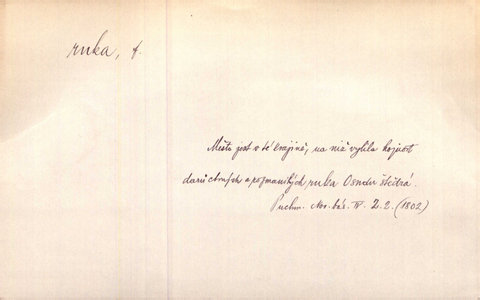 ruka, f.
Město jest v té krajině, na niž vylila hojnost
darů ctných a pozemských ruka Osudu štědrá.
Puchm. Nov. bás. IV. Z. 2. (1802)